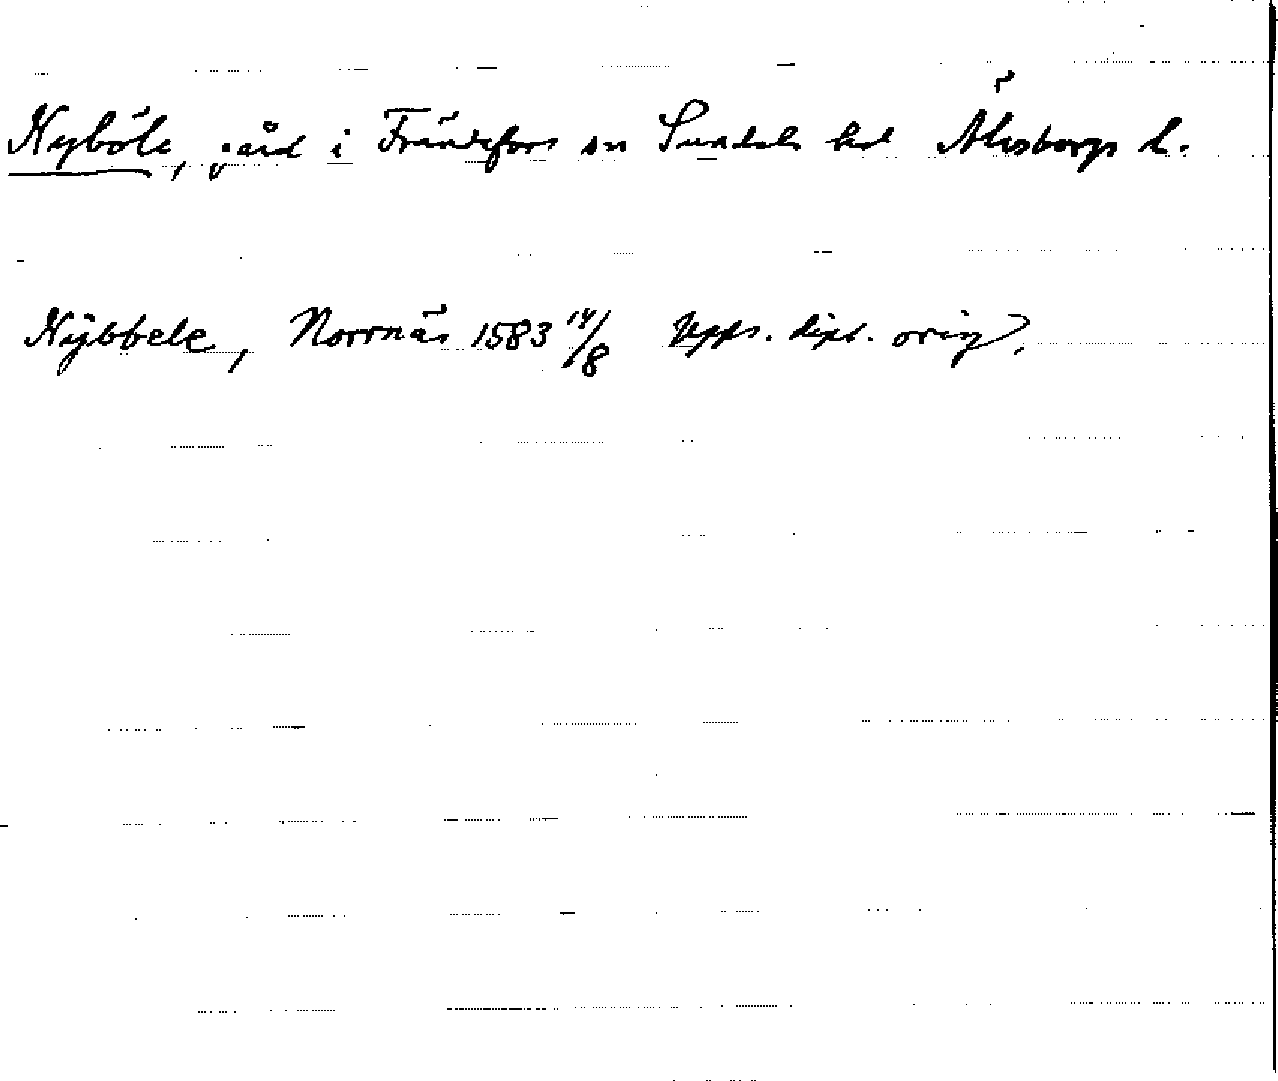 Nyböle, gård i Frändefors sn Sundals hd Älvsborgs l.
Nÿbbele, Norrnäs 1583 14/8 Upps. dipl. orig.